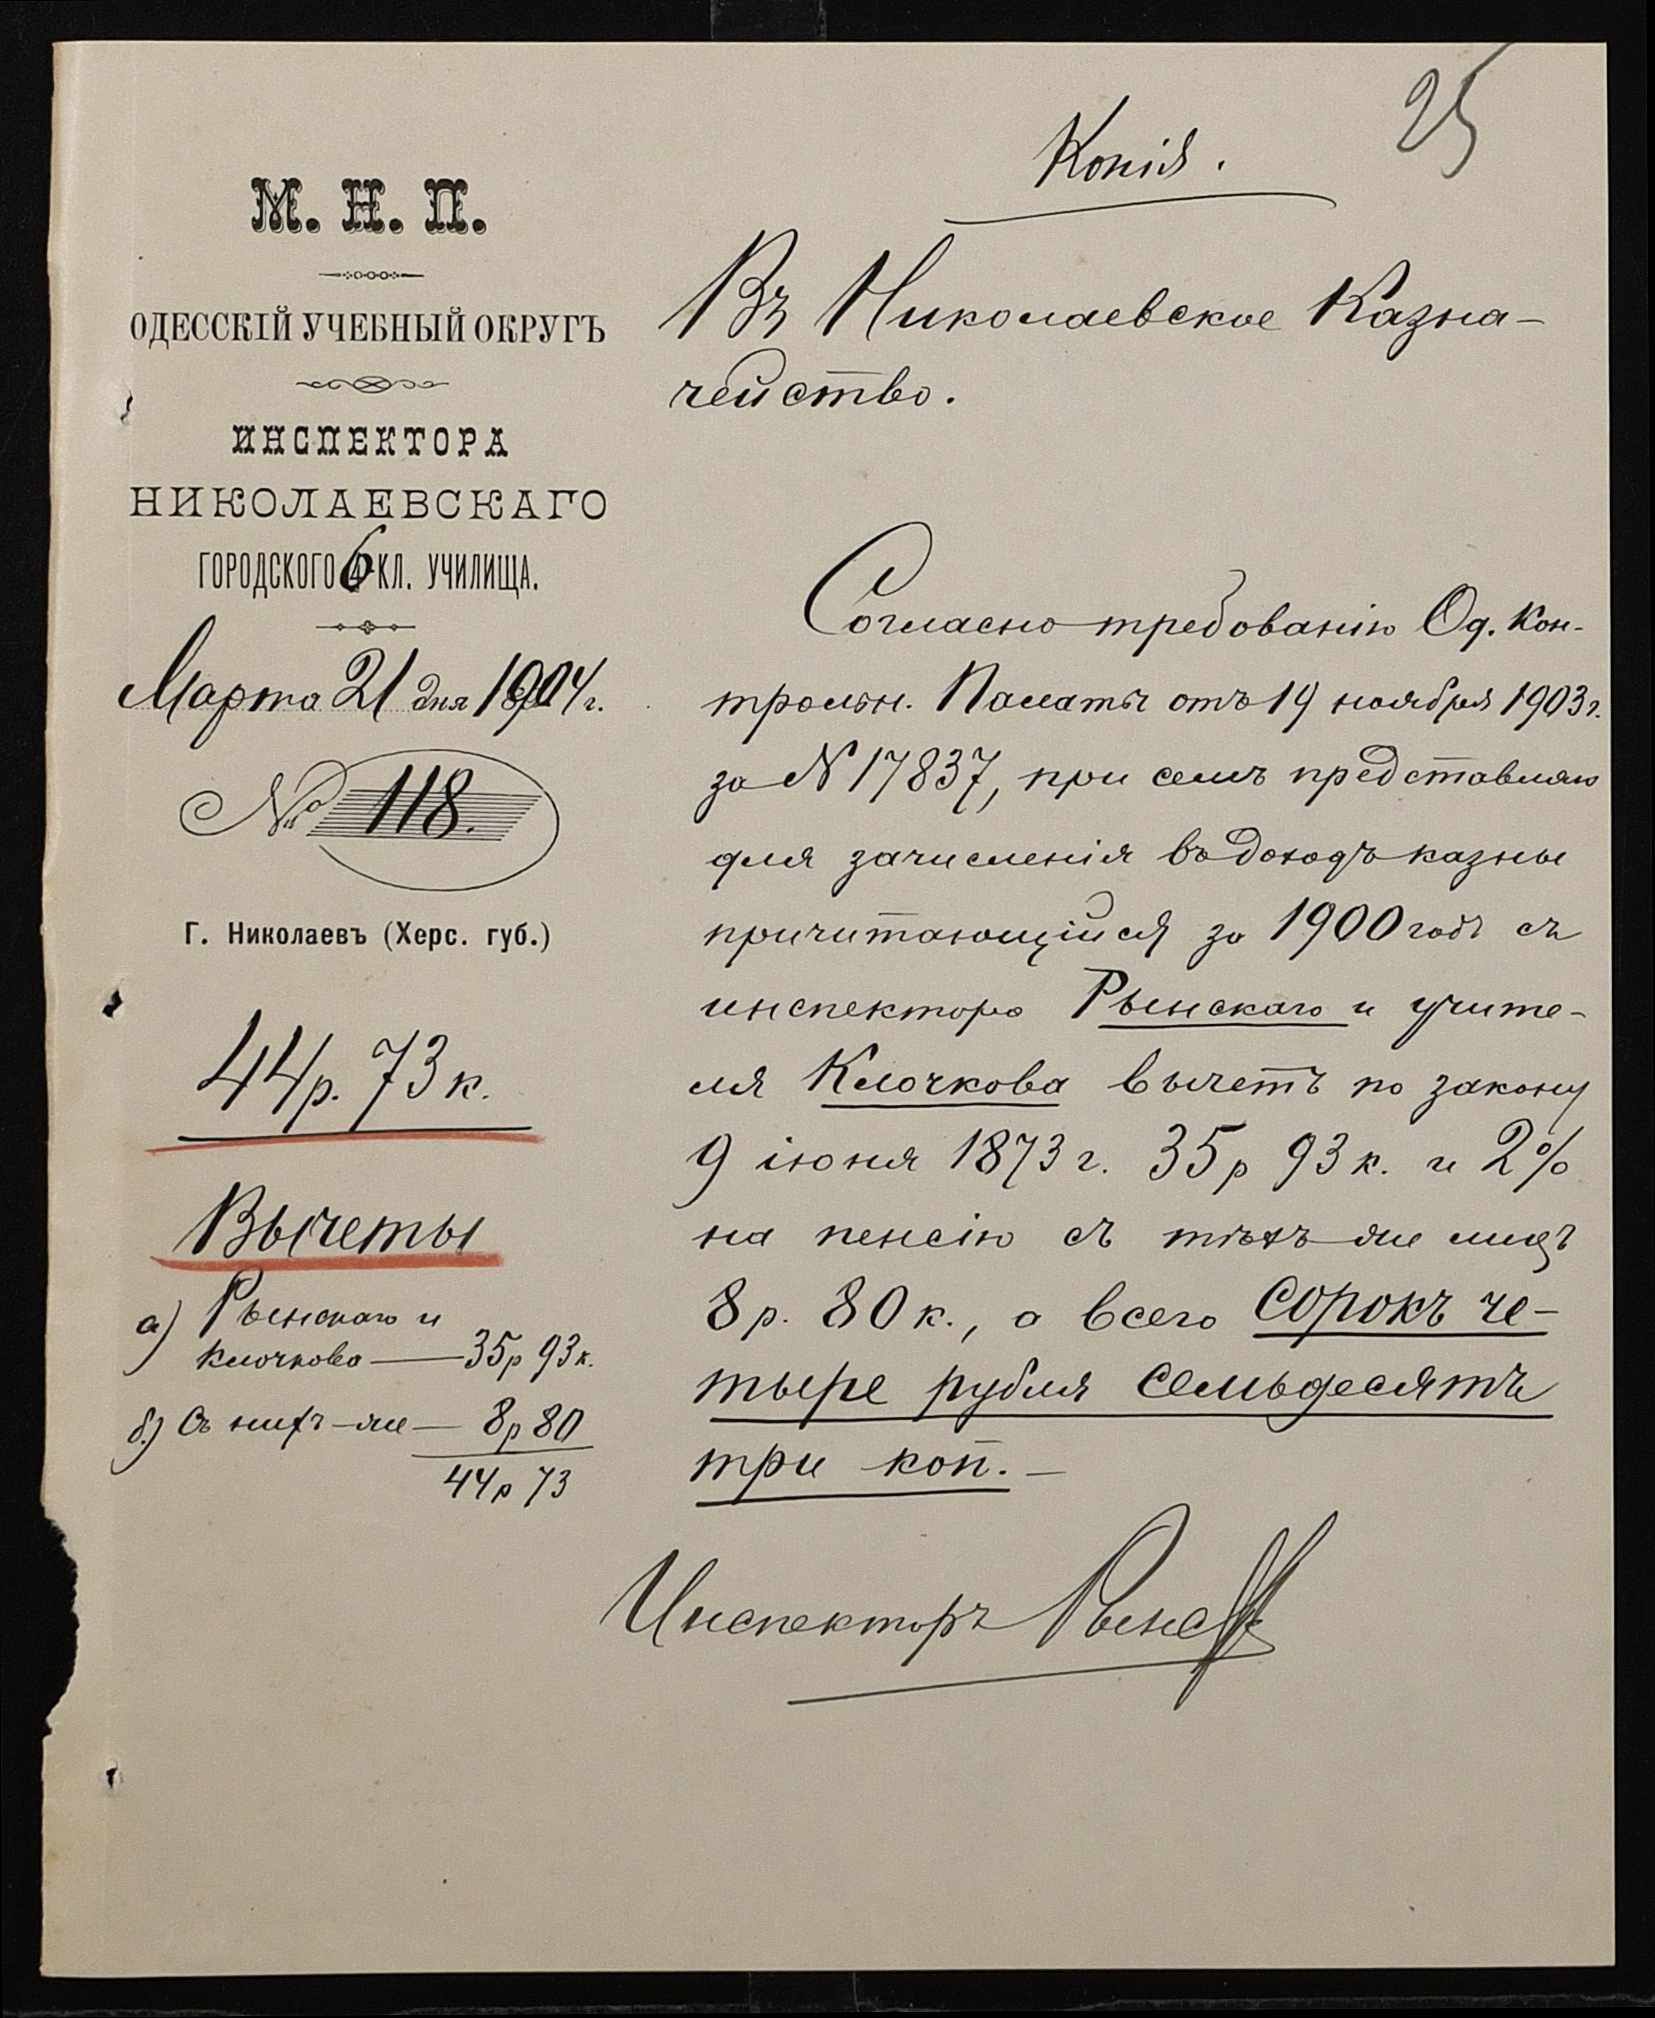 25
Копія.
М. Н. П.
ОДЕССКІЙ УЧЕБНЫЙ ОКРУГЪ
ИНСПЕКТОРА
НИКОЛАЕВСКАГО
ГОРОДСКОГО 6 КЛ. УЧИЛИЩА.
Марта 21 дня 1904 г.
№ 118.
Г. Николаевъ (Херс. губ.)
44 р. 73 к.
Вычеты
а) Рынскаго и
Клочкова — 35 р 93 к.
б.) Съ нихъ-же — 8 р 80
44 р 73
Въ Николаевское Казна-
чейство.
Согласно требованію Од. Кон-
трольн. Палаты отъ 19 ноября 1903 г.
за № 17837, при семъ представляю
для зачисленія въ доходъ казны
причитающійся за 1900 годъ съ
инспектора Рынскаго и учите-
ля Клочкова вычетъ по закону
9 іюня 1873 г. 35 р 93 к. и 2%
на пенсію съ тѣхъ же лицъ
8 р. 80 к., а всего сорокъ че-
тыре рубля семьдесятъ
три коп. —
Инспекторъ Рынс